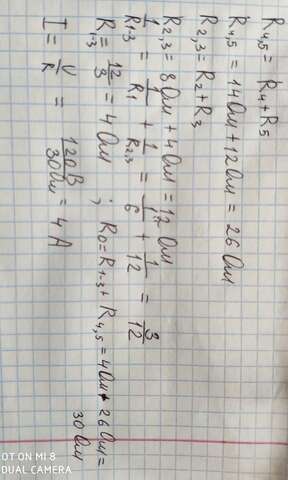 R4,5 = R4 + R5
R4,5 = 14 Ом + 12 Ом = 26 Ом
R2,3 = R2 + R3
R2,3 = 8 Ом + 4 Ом = 12 Ом
1/R1-3 = 1/R1 + 1/R2,3 = 1/6 + 1/12 = 3/12
R1-3 = 12/3 = 4 Ом ; R0 = R1-3 + R4,5 = 4 Ом + 26 Ом =
30 Ом
I = U/R = 120В/30 Ом = 4 А
OT ON MI 8
DUAL CAMERA